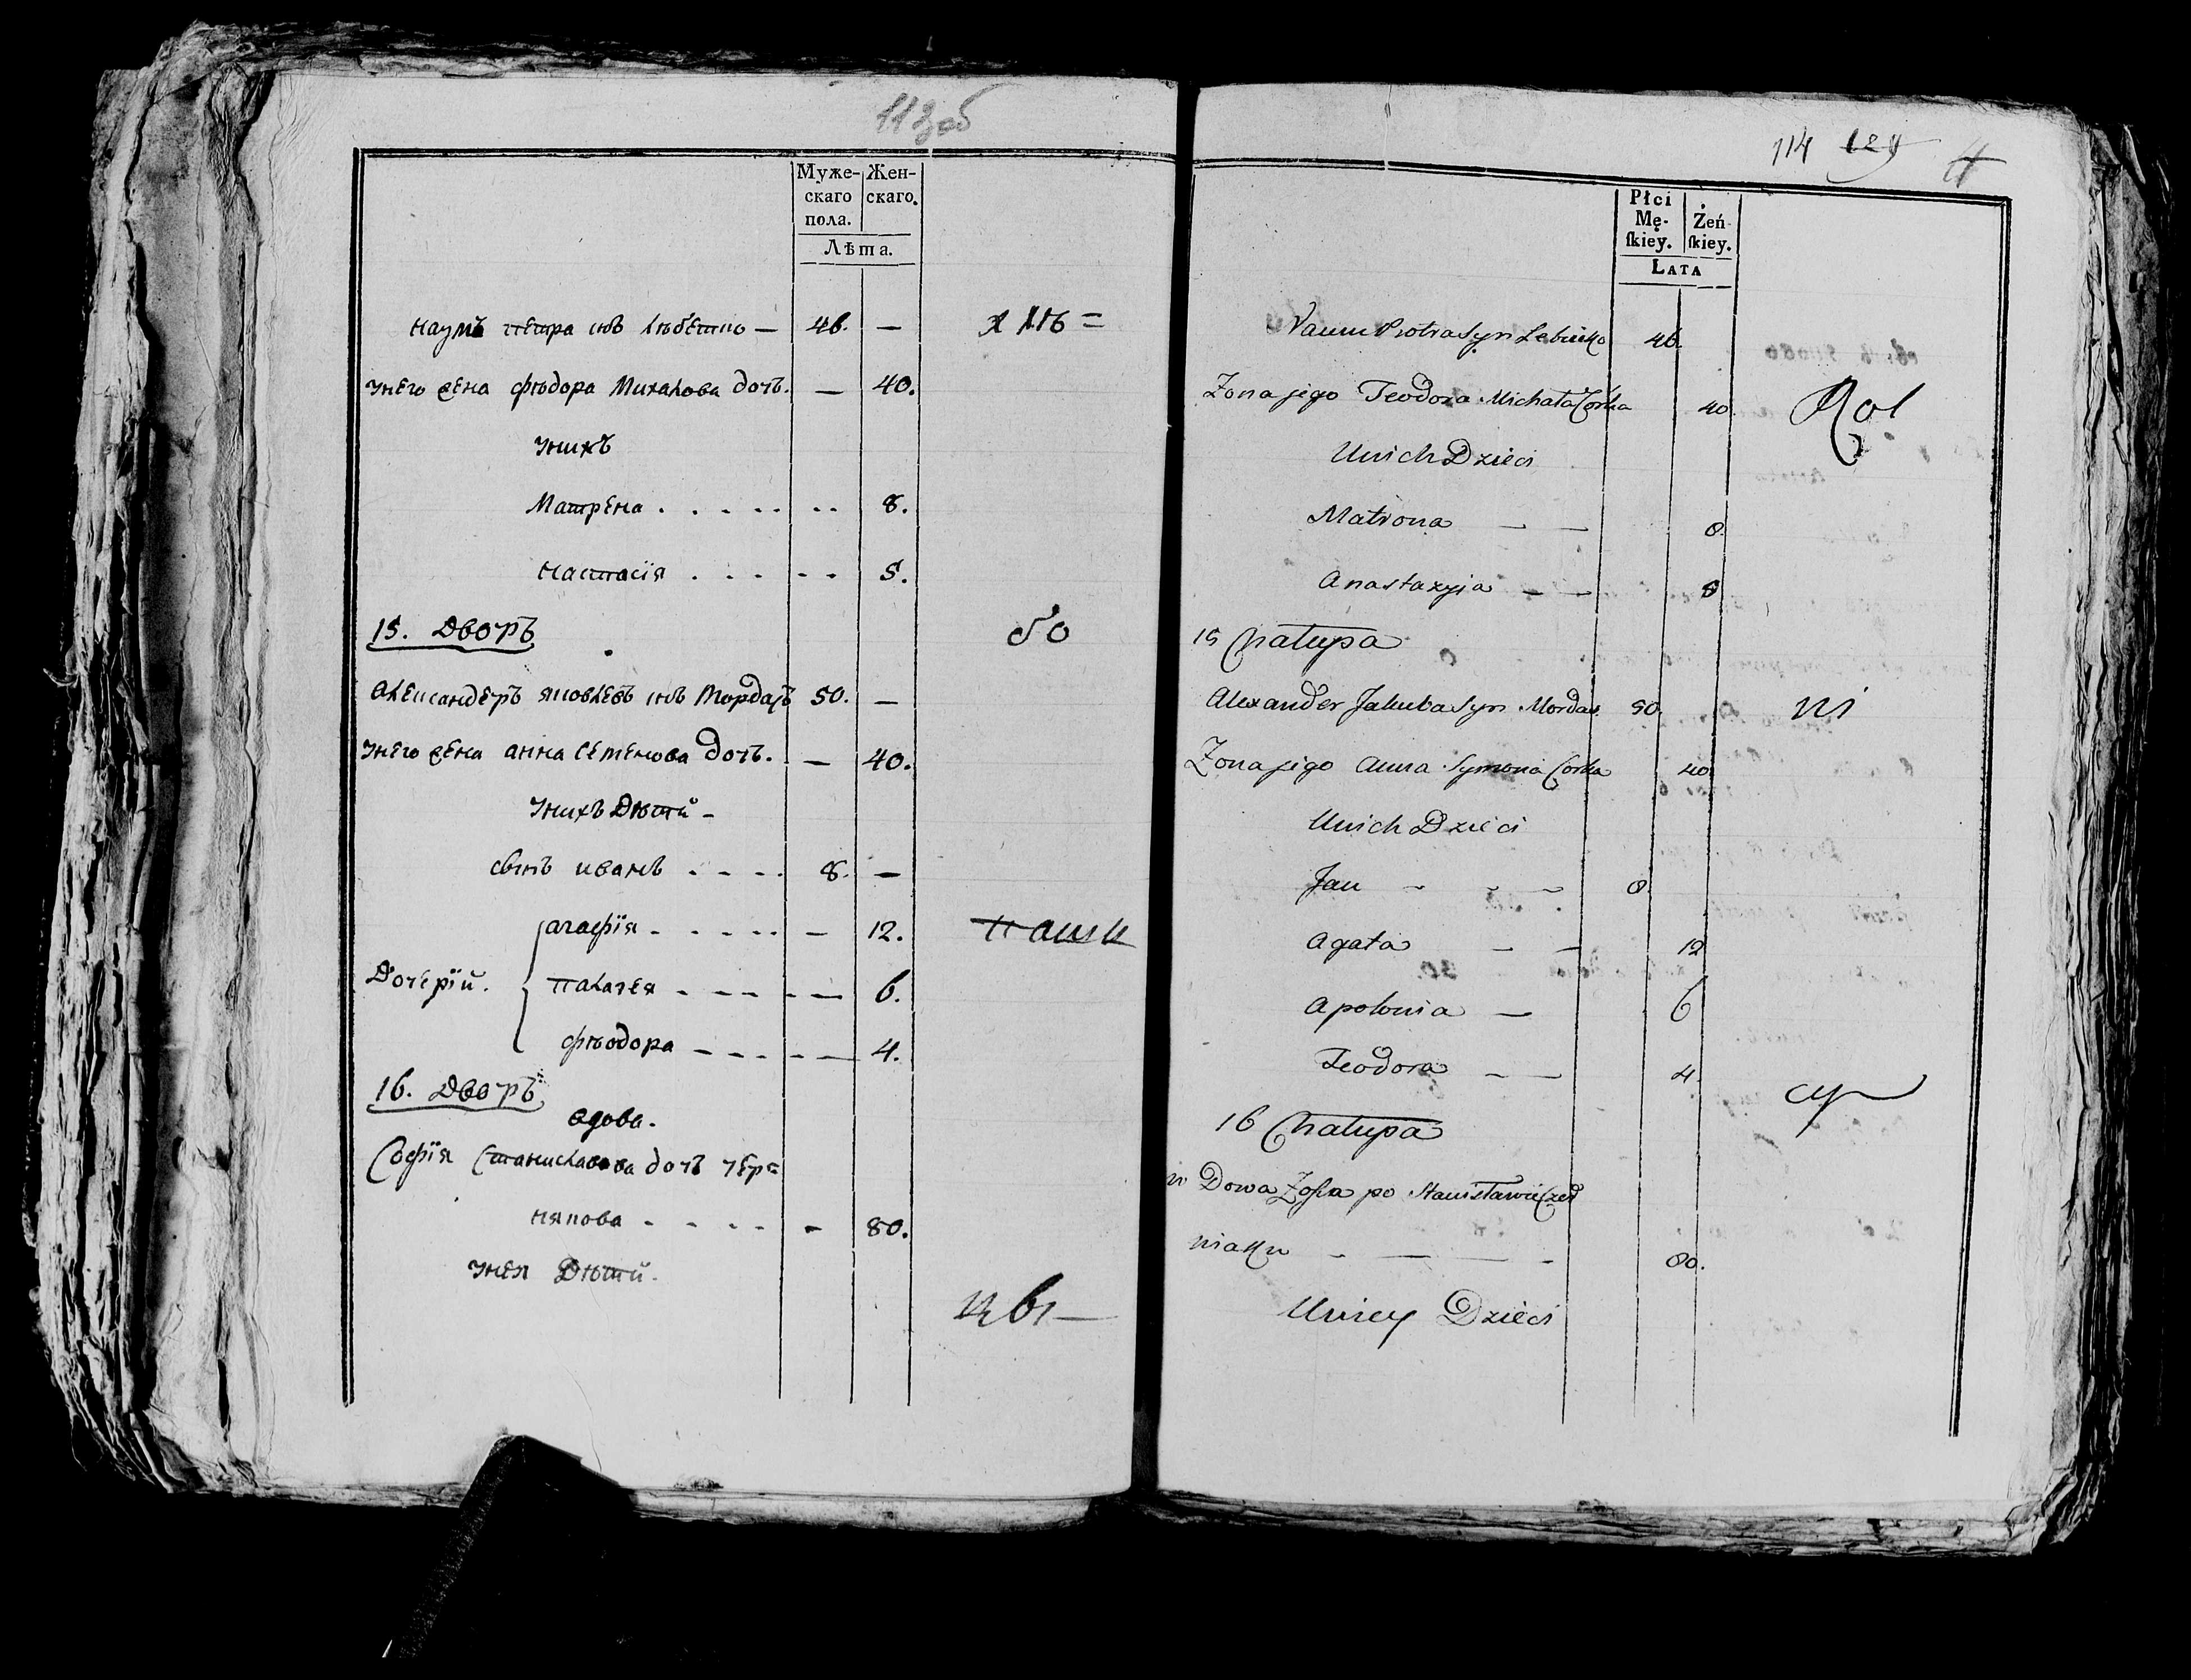 113 об
Муже-
скаго
пола.
Жен-
скаго.
Лѣта.
наумъ петра снъ лѣбетко — 46. —
унего жена фѣодора Михалова дочь. — 40.
унихъ
Матрена . . . . . . . 8.
настасія . . . - - 5.
15. Дворъ
александеръ яковлевъ снъ Мордасъ 50. —
унего жена анна семенова дочь. — 40.
унихъ Дѣтй -
сынъ иванъ . - - . 8. —
агафія - - - - - — 12.
Дочерїй. палагея - - - - — 6.
фѣодора - - - - — 4.
16. Дворъ
вдова.
Софія Станиславова дочь чер=
някова - - - - - 80.
унея Дѣтй.
бо
цы —
114 129
Płci
Mę-
ſkiey.
Żeń-
ſkiey.
Lata
Naum Piotra Syn Lebiedko 46.
Zona jego Teodora Michała Corka 40.
Unich Dzieci
Matrona — — 8.
Anastazyia — — 5
15 Chałupa
Alexander Jakuba Syn Mordas 50.
Zona jego Anna Symona Corka 40.
Unich Dzieci
Jan - - — 8.
Agata — — 12
Apolonia — 6
Teodora — — 4.
16 Chałupa
w Dowa Zofia po Stanisławie Czer
niaku - — — - 80.
Uniey Dzieci
Rol
ni
cy